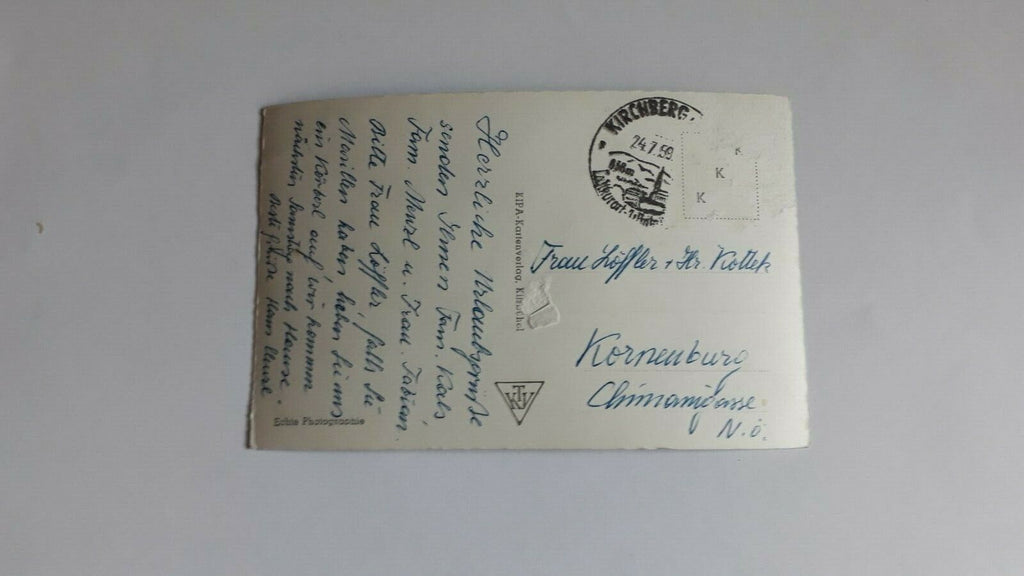 Herzliche Urlaubsgrüße
senden Ihnen Fam. Kals
Fam. Menzl u. Frau Fabian.
Bitte Frau Löffler falls Sie
Marillen haben heben Sie uns
ein Körberl auf, wir kommen
nächsten Samstag nach Hause.
Echte Photographie
KIPA-Kartenverlag, Kitzbühel
KVTV
KIRCHBERG
24.7.59
K
K
K
Frau Löffler + Hr. Kottek
Korneuburg
Chimanigasse
N.Ö.